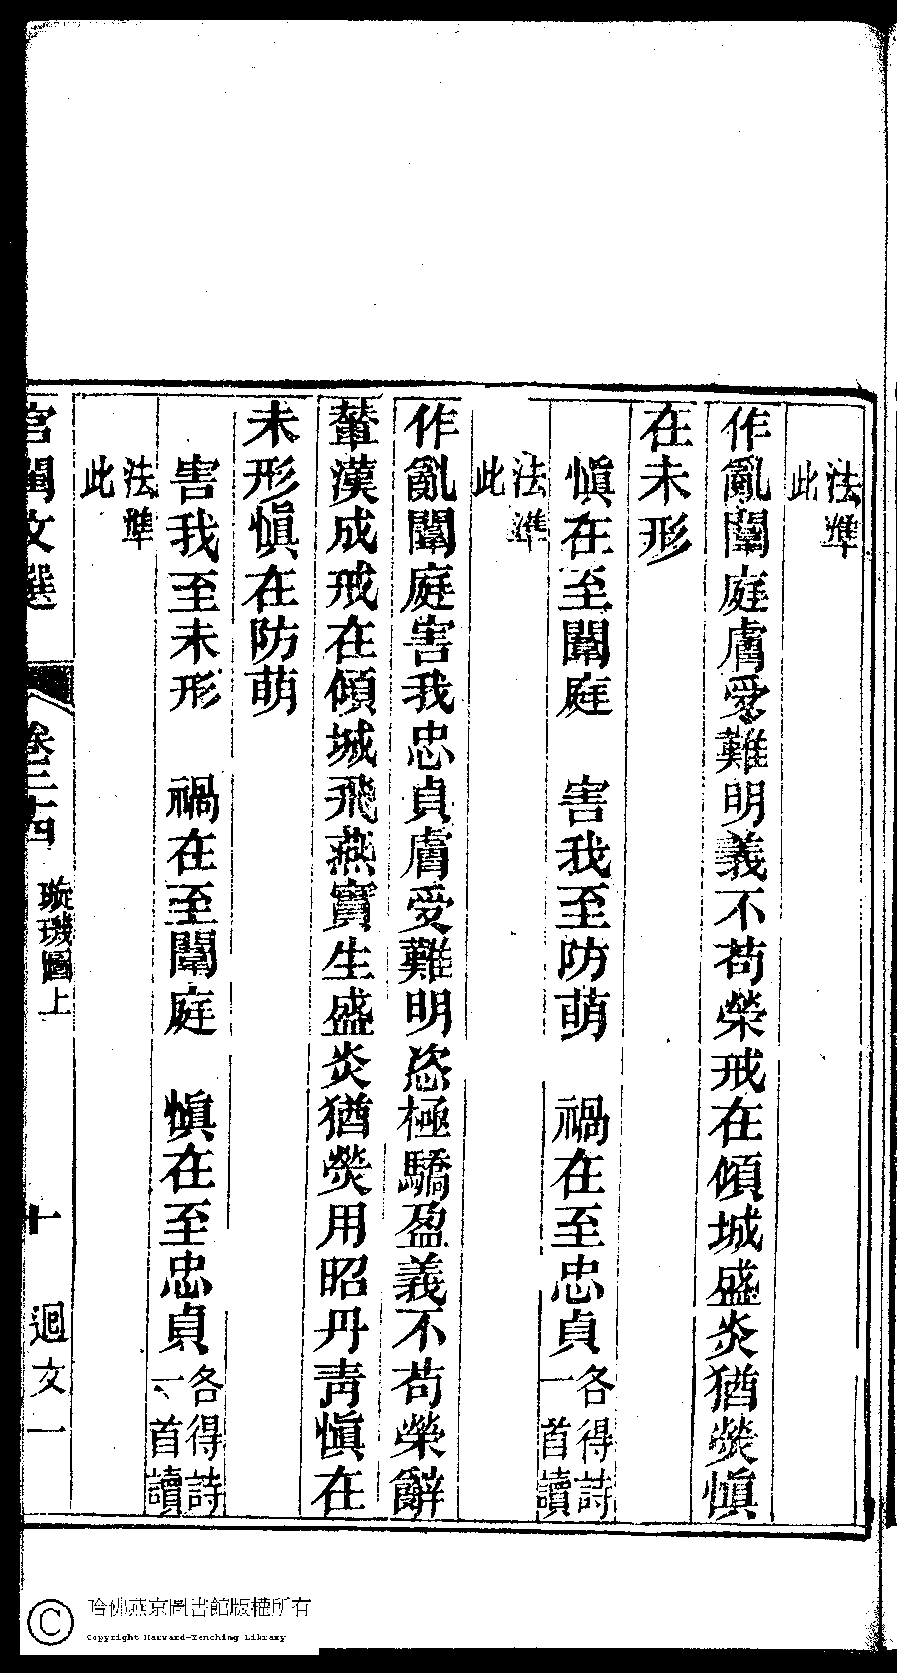 法準
此
作亂闈庭膚受難明義不苟榮戒在傾城盛炎猶熒愼
在未形
愼在至闈庭　害我至防萌　禍在至忠貞各得詩
一首讀
法準
此
作亂闈庭害我忠貞膚受難明恣極驕盈義不苟榮辭
輦漢成戒在傾城飛燕實生盛炎猶熒用昭丹靑愼在
未形愼在防萌
害我至未形　禍在至闈庭　愼在至忠貞各得詩
一首讀
法準
此
宮閨文選　卷二十四　璇璣圖上　十　迴文一
哈佛燕京圖書館版權所有
Copyright Harvard-Yenching Library